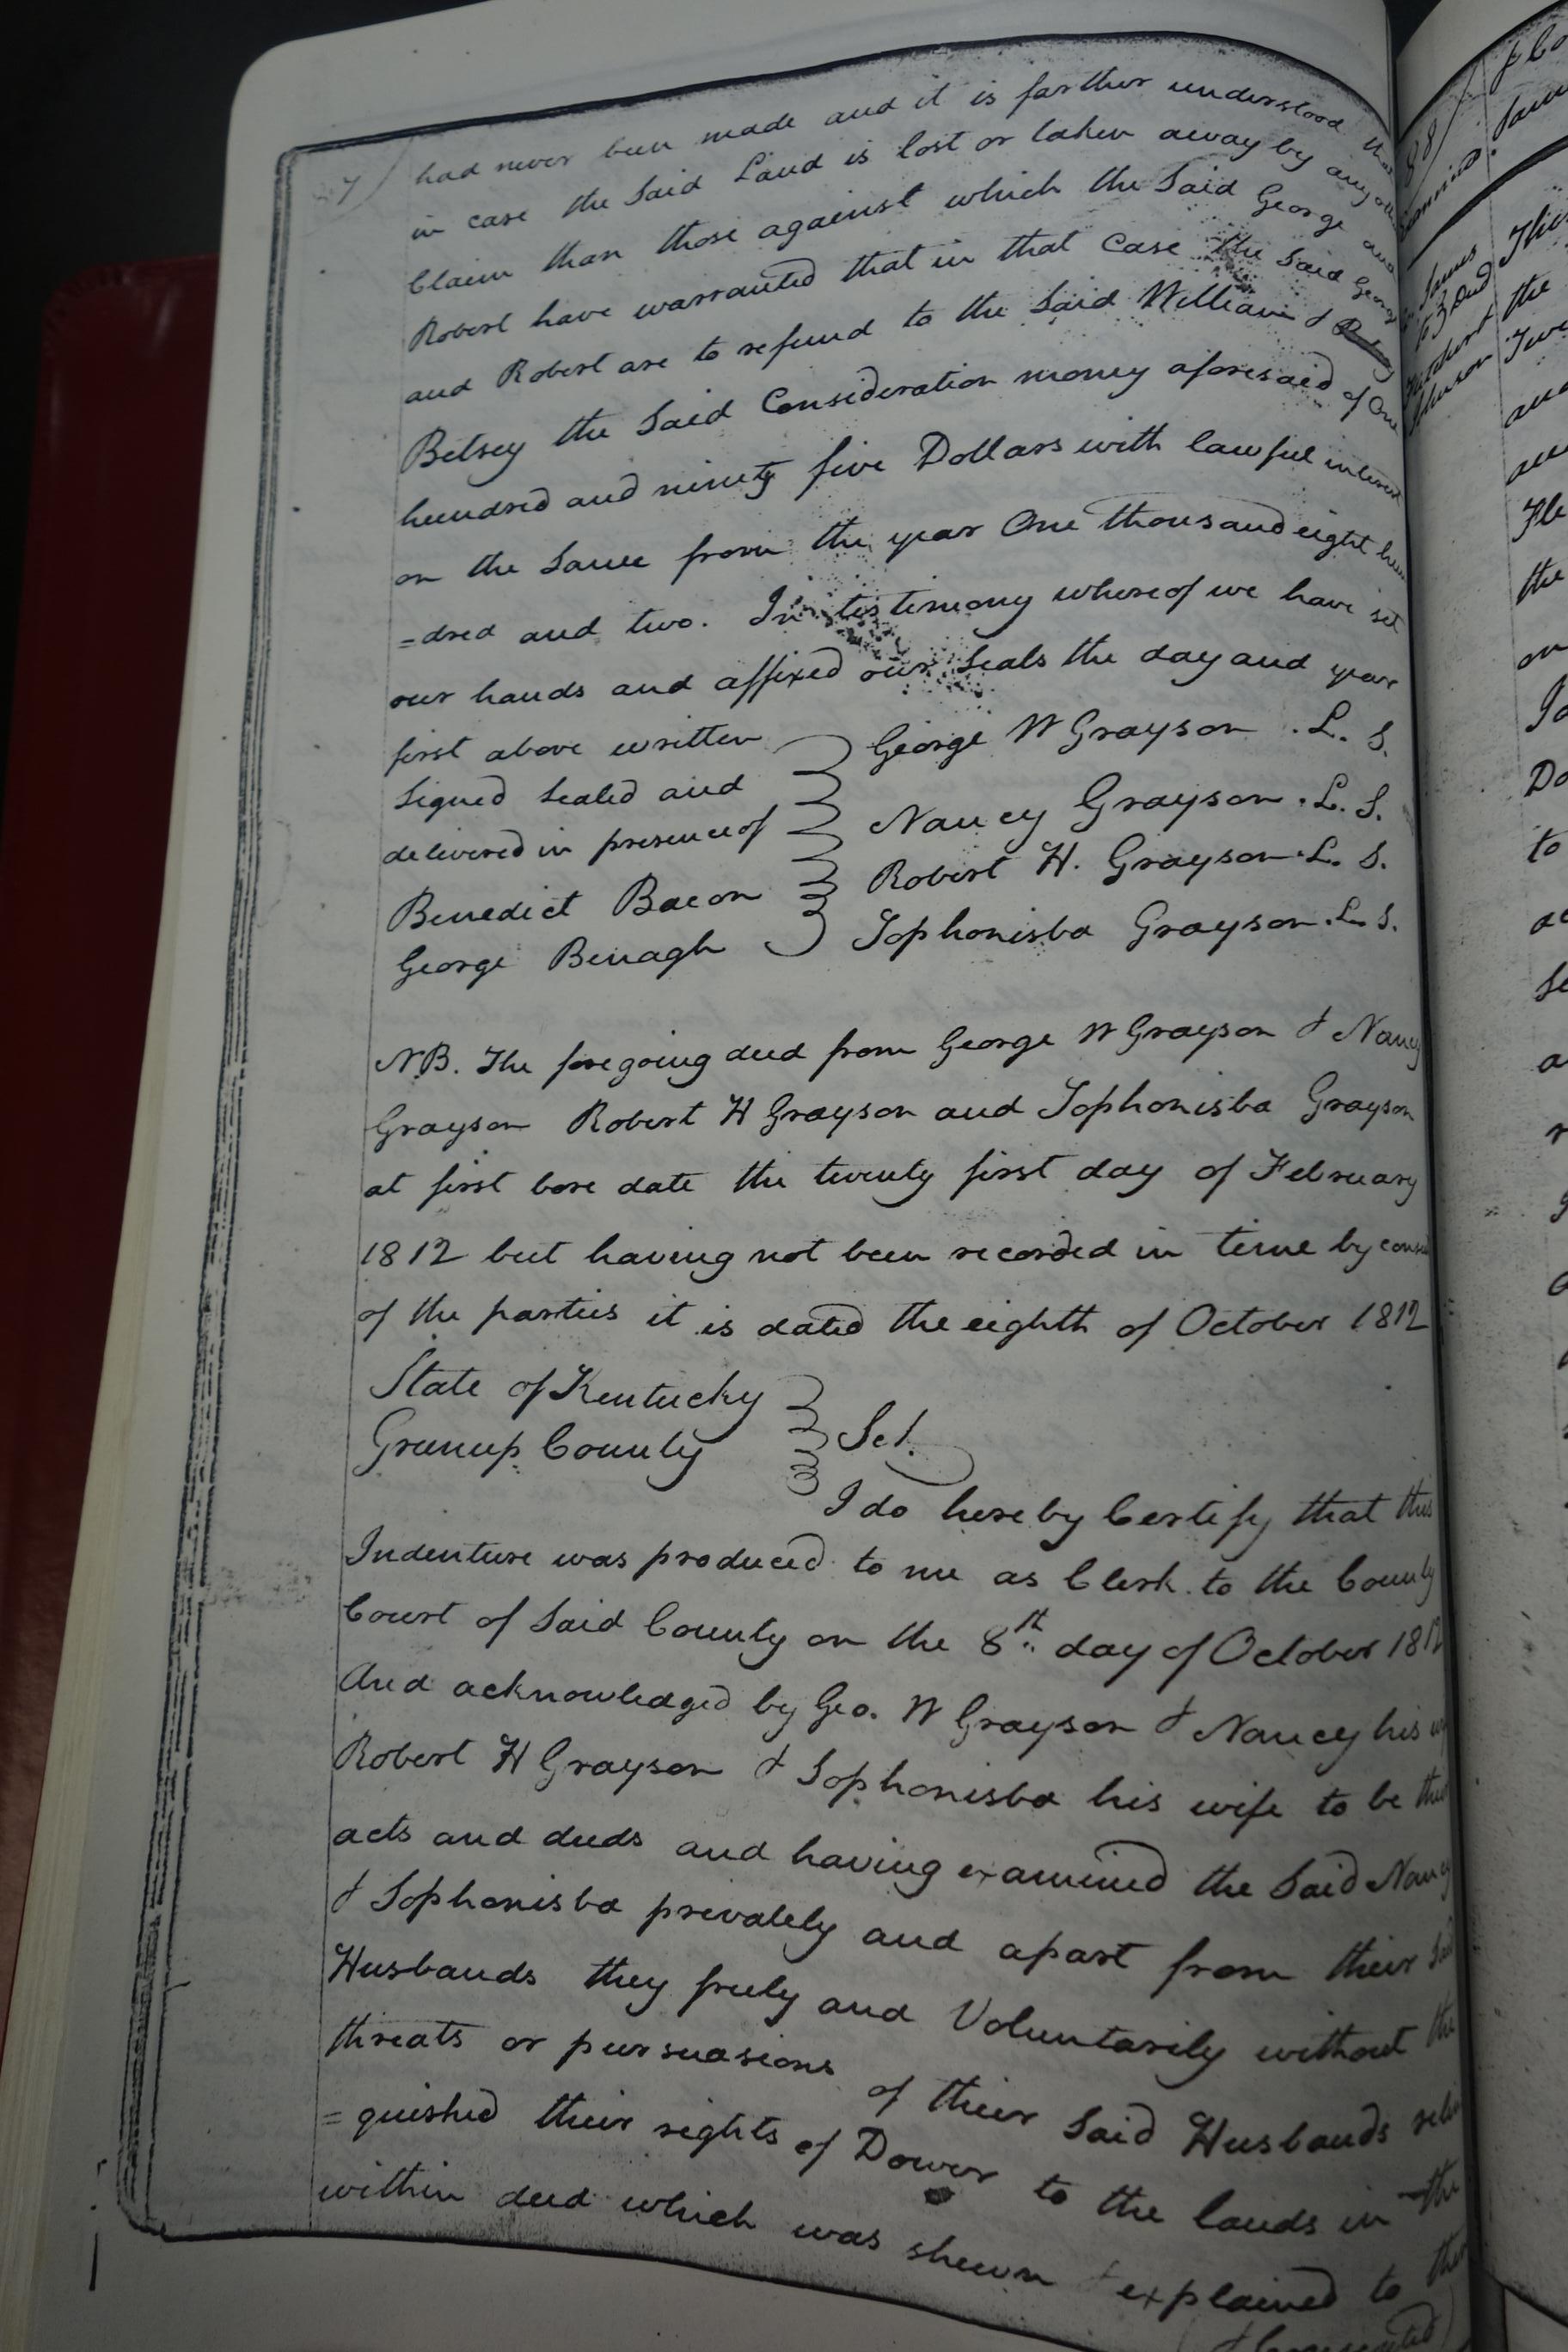 had never been made and it is farther understood that
in case the Said Land is lost or taken away by any
Claim than those against which the Said George and
Robert have warranted that in that Case the Said George
and Robert are to refund to the Said William &
Betsey the Said Consideration money aforesaid of One
hundred and ninety five Dollars with lawful interest
on the Same from the year One thousand eight hun
=dred and two. In testimony whereof we have set
our hands and affixed our Seals the day and year
first above written
Signed Sealed and
delivered in presence of
Benedict Bacon
George Benagh
George W Grayson . L. S.
Nancy Grayson . L. S.
Robert H. Grayson . L. S.
Sophonisba Grayson . L. S.
NB. The foregoing deed from George W Grayson & Nancy
Grayson Robert H Grayson and Sophonisba Grayson
at first bore date the twenty first day of February
1812 but having not been recorded in time by
of the parties it is dated the eighth of October 1812
State of Kentucky
Greenup County
Sct.
I do hereby Certify that this
Indenture was produced to me as Clerk to the County
Court of Said County on the 8th day of October 1812
And acknowledged by Geo. W Grayson & Nancy his
Robert H Grayson & Sophonisba his wife to be their
acts and deeds and having examined the Said Nancy
& Sophonisba privately and apart from their Said
Husbands they freely and Voluntarily without the
threats or pursuasions of their Said Husbands relin
=quished their rights of Dower to the lands in the
within deed which was shewn & explained to them
88
James
This
the
and
the
on
Do
to